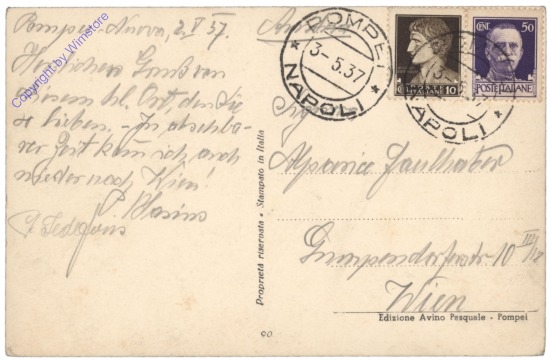 Pompei-Nuova, 2.V.37.
Herzlichen Gruß von
hl. Ort, den Sie
so lieben. - In absehba-
rer Zeit kom ich auch
wieder nach Wien!
P.
Copyright by Winstore
POMPEI
3-5.37
* NAPOLI *
10
CENT. 50
POSTE ITALIANE
NAPOLI *
Faulhaber
Gumpendorferstr 10 III/12
Wien
Proprietà riservata * Stampato in Italia
Edizione Avino Pasquale - Pompei
90